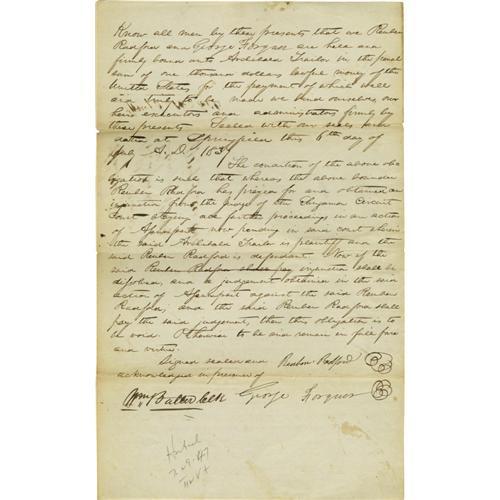 Know all men by these presents that we Reuben
Radford and George Forquer are held and
firmly bound unto Archibald Trailor in the penal
sum of one thousand dollars lawful money of the
United States for the payment of which well
and truly to be made we bind ourselves, our
heirs executors and administrators firmly by
these presents Sealed with our seals and
dated at Springfield this 6th day of
July A.D. 183
The condition of the above obl
igation is such that whereas the above bounden
Reuben Radford has prayed for and obtained an
injunction from the judge of the Sangamon Circuit
Court staying all further proceedings in an action
of Assumpsit now pending in said court wherein
the said Archibald Trailor is plaintiff and the
said Reuben Radford is defendant Now if the
said Reuben Radford shall pay injunction shall be
disolved, and a judgement obtained in the said
action of Assumpsit against the said Reuben
Radford, and the said Reuben Radford shall
pay the said judgement, then this obligation is to
be void Otherwise to be and remain in full force
and virtue.
Signed sealed and Reuben Radford
acknowledged in presence of
Wm Butler Clk George Forquer